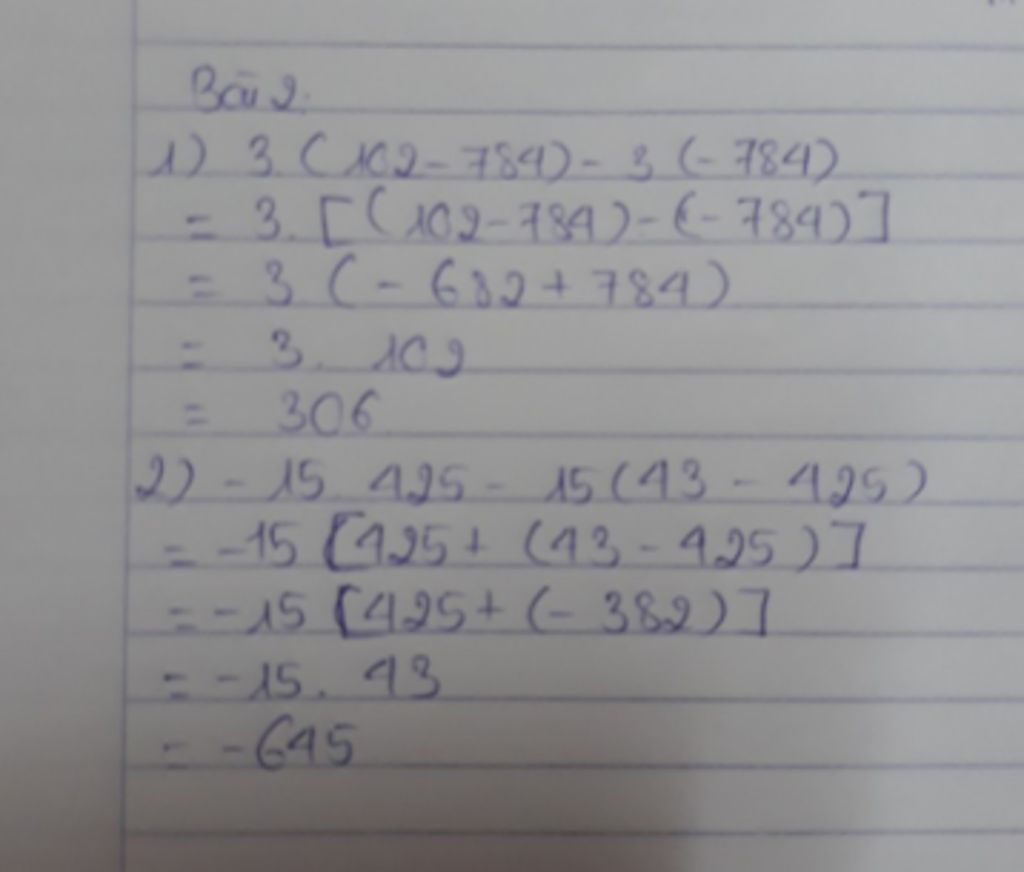 Bài 2:
1) 3. (102 - 784) - 3 (- 784)
= 3. [(102 - 784) - (- 784)]
= 3 (- 682 + 784)
= 3. 102
= 306
2) - 15. 425 - 15 (43 - 425)
= -15 [425 + (43 - 425)]
= -15 [425 + (- 382)]
= -15. 43
= -645